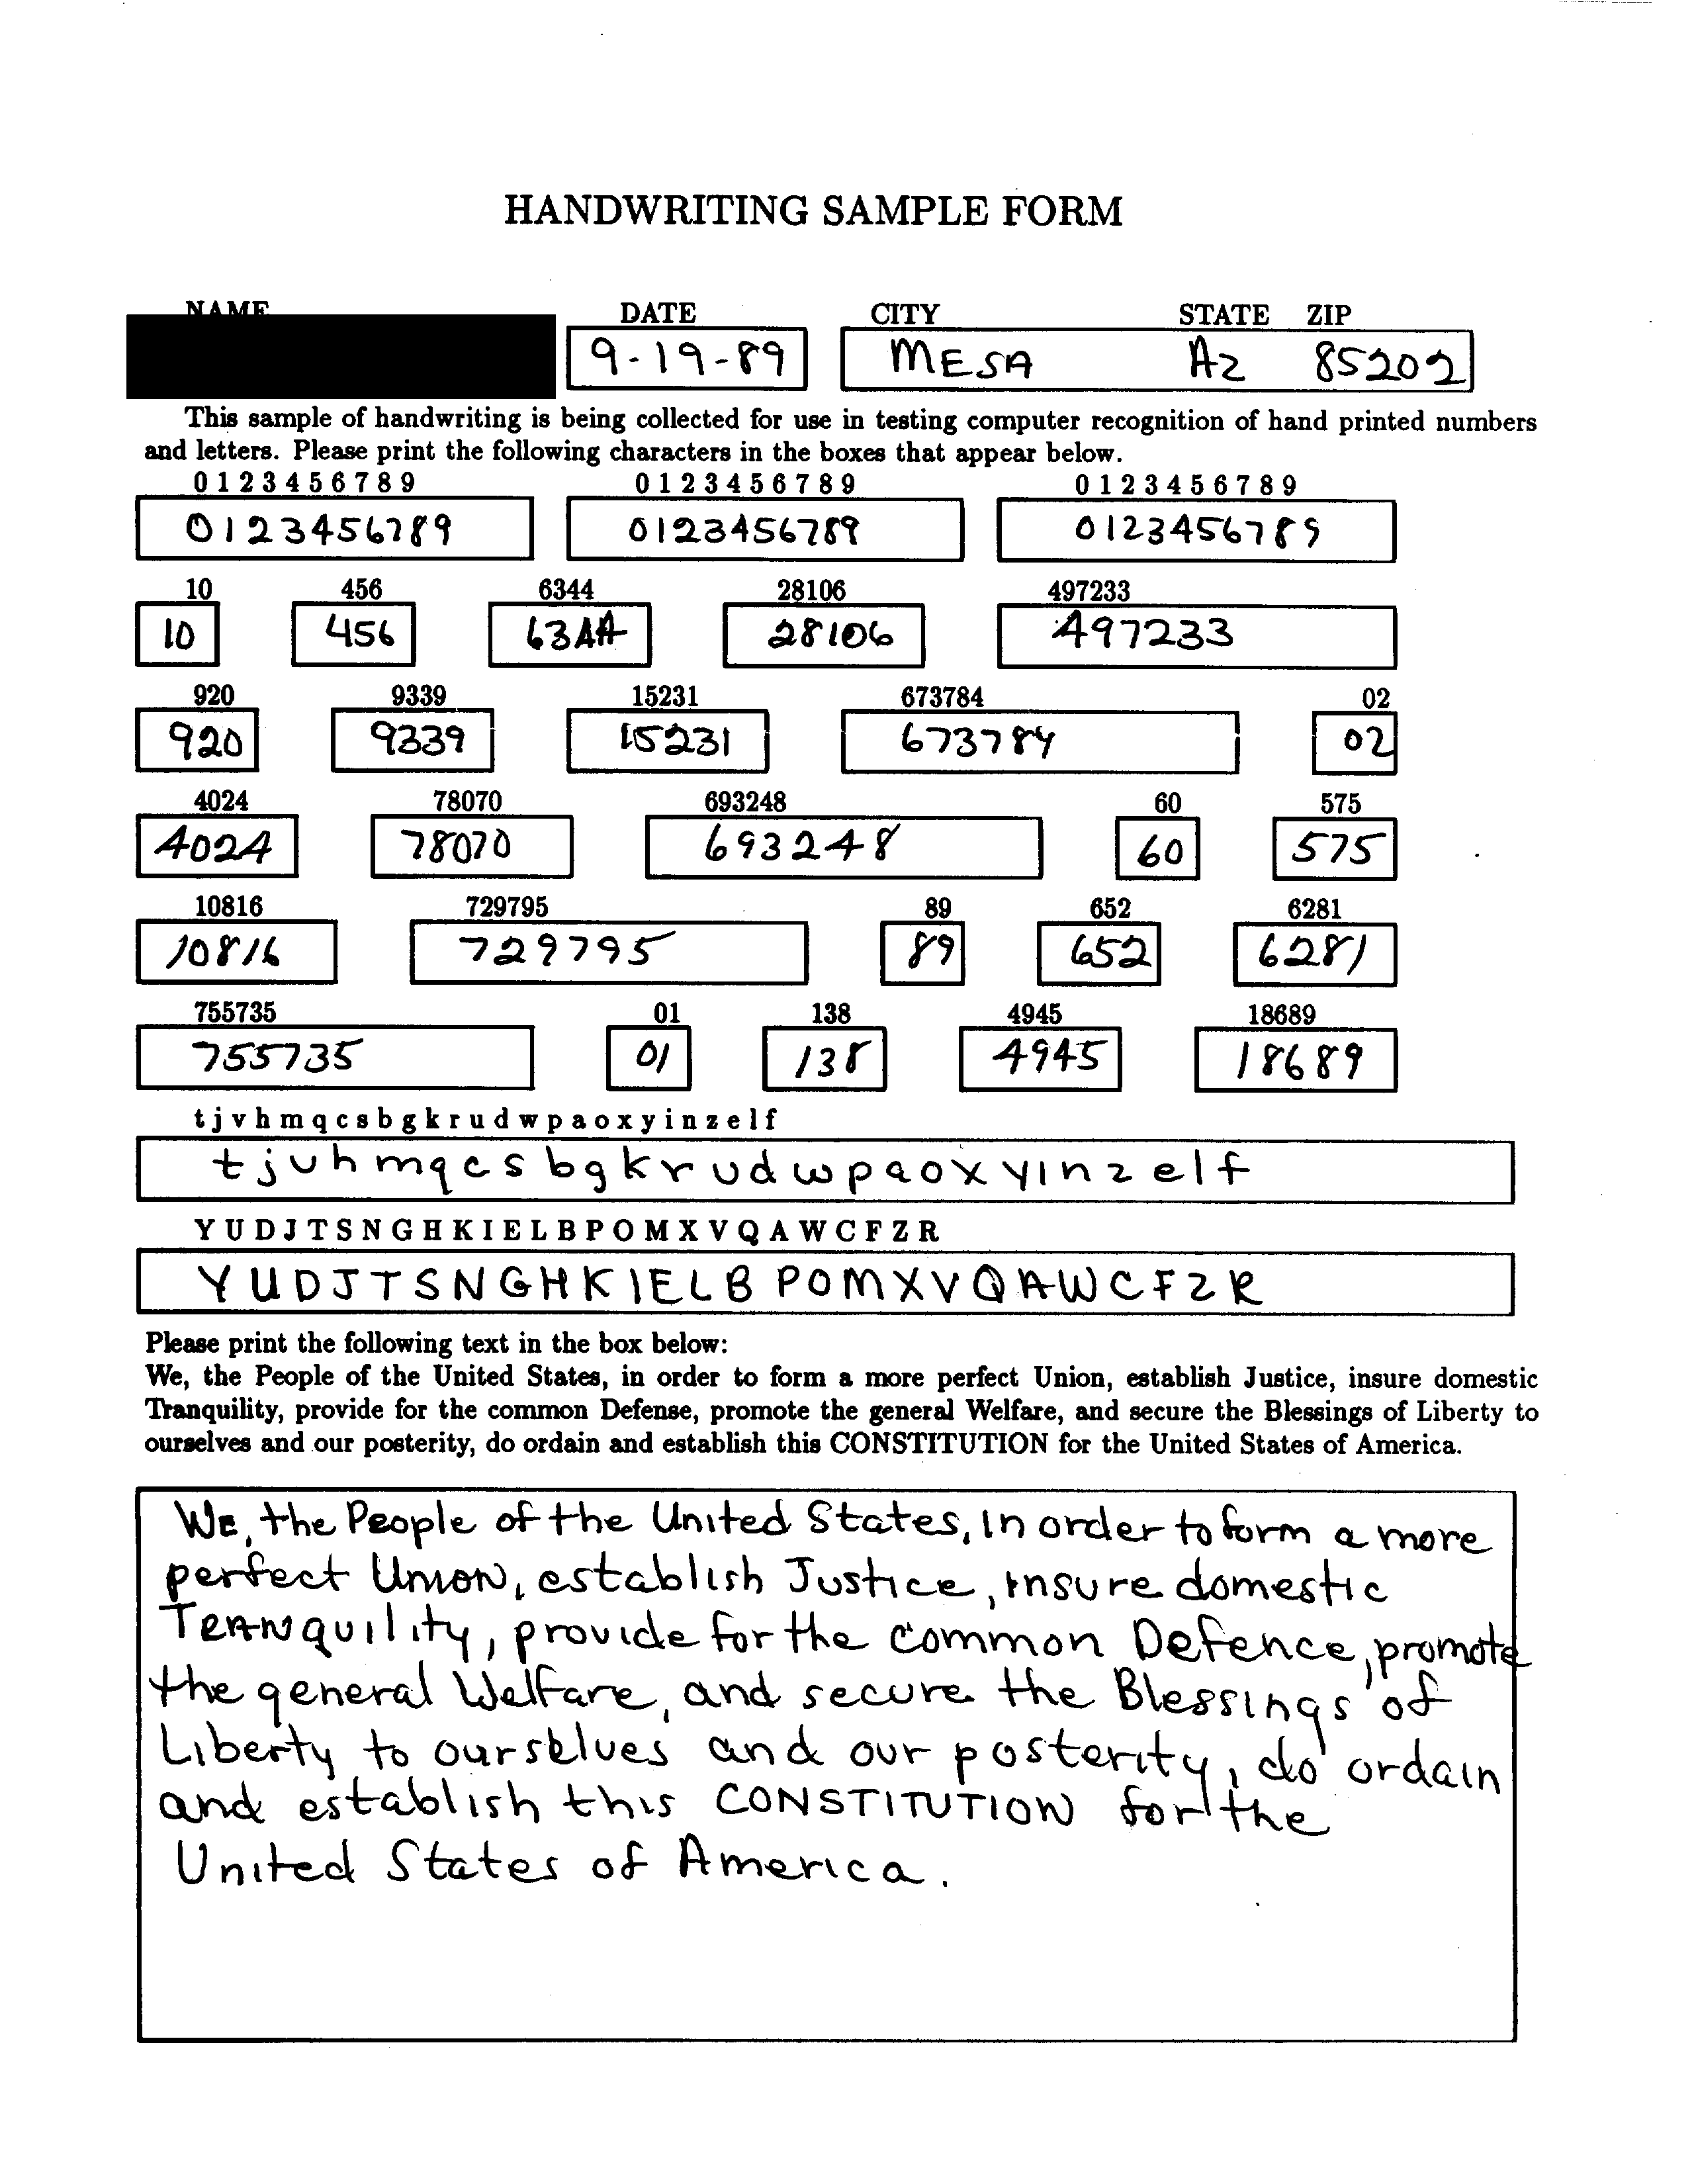 HANDWRITING SAMPLE FORM
NAME DATE CITY STATE ZIP
9-19-89 MESA AZ 85202
This sample of handwriting is being collected for use in testing computer recognition of hand printed numbers
and letters. Please print the following characters in the boxes that appear below.
0 1 2 3 4 5 6 7 8 9 0 1 2 3 4 5 6 7 8 9 0 1 2 3 4 5 6 7 8 9
0123456789 0123456789 0123456789
10 456 6344 28106 497233
10 456 6344 28106 497233
920 9339 15231 673784 02
920 9339 15231 673784 02
4024 78070 693248 60 575
4024 78070 693248 60 575
10816 729795 89 652 6281
10816 729795 89 652 6281
755735 01 138 4945 18689
755735 01 138 4945 18689
t j v h m q c s b g k r u d w p a o x y i n z e l f
t j v h m q c s b g k r u d w p a o x y i n z e l f
Y U D J T S N G H K I E L B P O M X V Q A W C F Z R
Y U D J T S N G H K I E L B P O M X V Q A W C F Z R
Please print the following text in the box below:
We, the People of the United States, in order to form a more perfect Union, establish Justice, insure domestic
Tranquility, provide for the common Defense, promote the general Welfare, and secure the Blessings of Liberty to
ourselves and our posterity, do ordain and establish this CONSTITUTION for the United States of America.
We, the People of the United States, in order to form a more
perfect Union, establish Justice, insure domestic
Tranquility, provide for the common Defence, promote
the general Welfare, and secure the Blessings of
Liberty to ourselves and our posterity, do ordain
and establish this CONSTITUTION for the
United States of America.